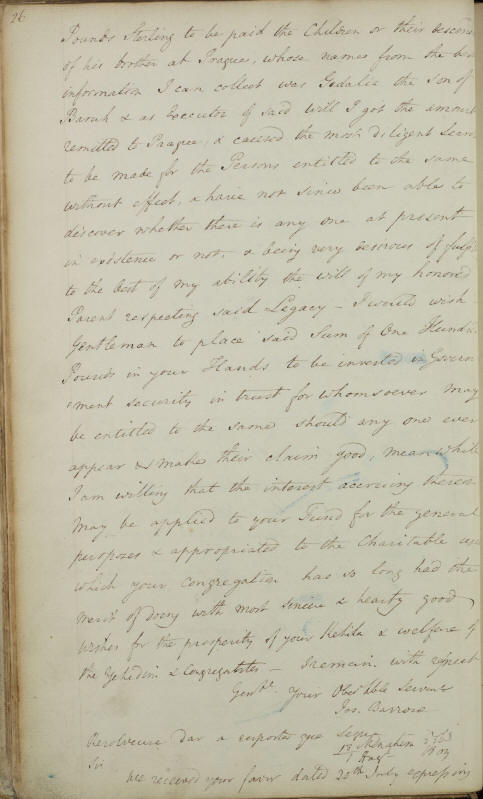 26
Pounds Sterling to be paid the Children or their descend
of his brother at Prague, whose names from the best
information I can collect was Gedalie the son of
Baruh & as Executor of said will I got the amount
remitted to Prague, & caused the most diligent Searc
to be made for the Persons entitled to the same
without effect, & have not since been able to
discover whether there is any one at present
in existence or not, & being very desirous of
to the best of my ability the will of my honored
Parent respecting said Legacy - I would wish
Gentleman to place said Sum of One Hundr
Pounds in your Hands to be invested in Govern
ment security in trust for whomsoever may
be entitled to the same should any one ever
appear & make their claim good, mean while
I am willing that the interest accruing thereon
may be applied to your Fund for the general
purposes & appropriated to the Charitable use
which your congregation has so long had the
merit of doing with most sincere & hearty good
wishes for the prosperity of your Kehila & welfare of
the Yehidim & Congregates - I remain with respect
Gent. Your Obed.ble Servant
Jos. Barrow
dar a reposta que Segue
Sir
We received your favor dated 20th July expressing